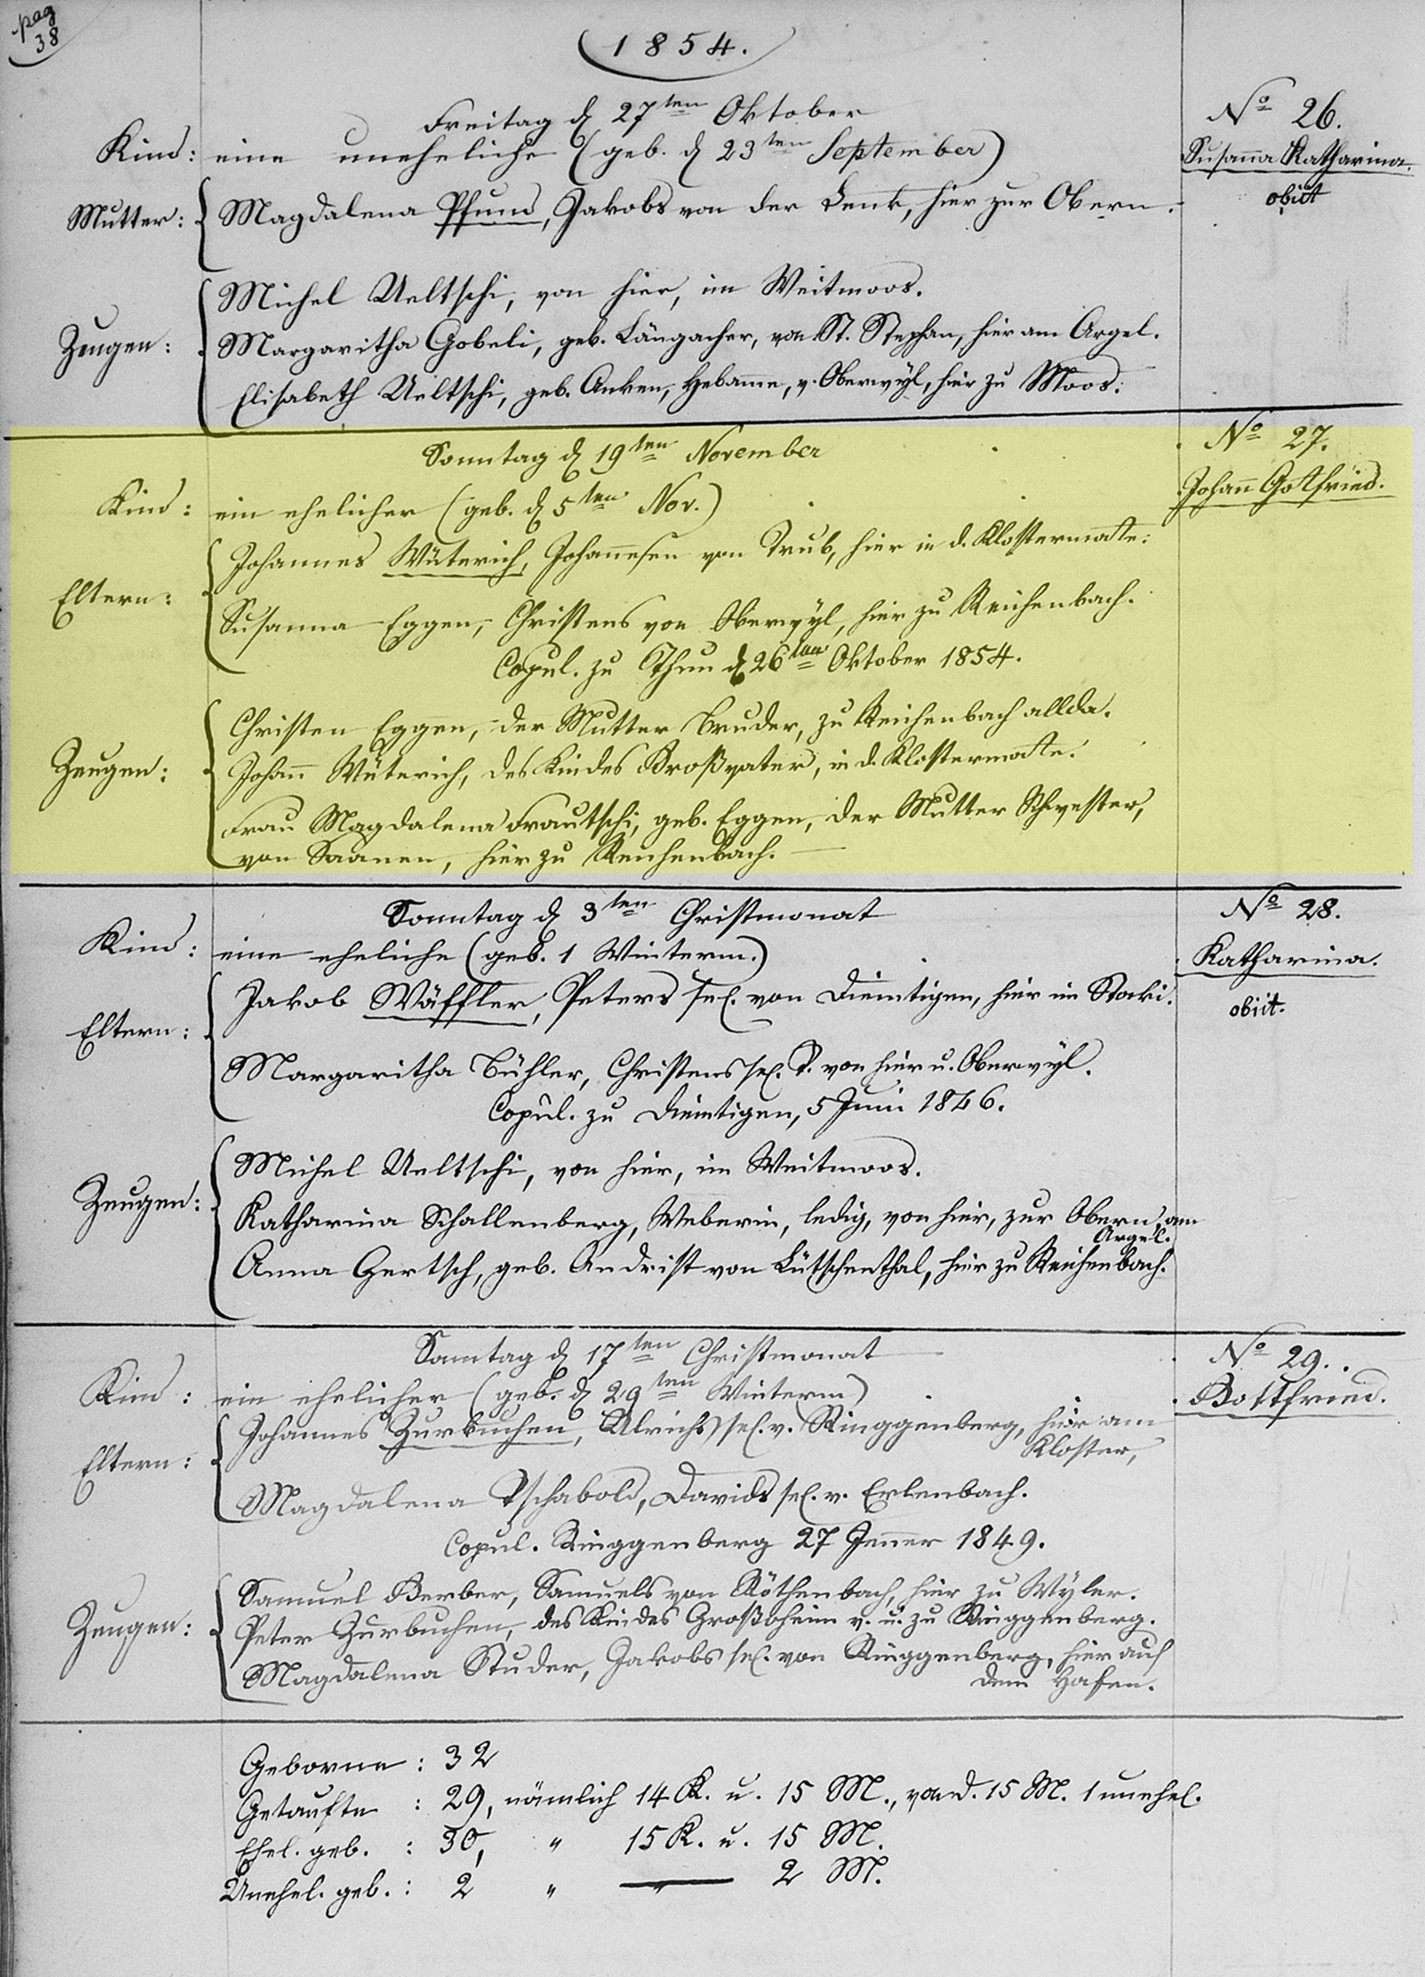 pag
38
1854.
Freitag d 27ten Oktober
No 26.
Kind: eine uneheliche (geb. d 23ten September)
Susanna Katharina.
obiit
Mutter: Magdalena Pfund, Jakobs von der Lenk, hier zur Obern.
Michel Ueltschi, von hier, im Weitmoos.
Zeugen: Margaritha Gobeli, geb. Längacher, von St. Stephan, hier am Argel.
Elisabeth Ueltschi, geb. Anken, Hebamme, v. Oberwyl, hier zu Moos.
Sonntag d 19ten November
No 27.
Kind: ein ehelicher (geb. d 5ten Nov.)
Johann Gottfried.
Johannes Wüterich, Johannesen von Trub, hier in d. Klostermatte:
Eltern:
Susanna Eggen, Christens von Oberwyl, hier zu Reichenbach.
Copul. zu Thun d 26ten Oktober 1854.
Christen Eggen, der Mutter Bruder, zu Reichenbach allda.
Zeugen: Johann Wüterich, des Kindes Großvater, in d. Klostermatte.
Frau Magdalena Frautschi, geb. Eggen, der Mutter Schwester,
von Saanen, hier zu Reichenbach.
Sonntag d 3ten Christmonat
No 28.
Kind: eine eheliche (geb. 1 Winterm.)
Katharina.
obiit.
Jakob Wäffler, Peters sel. von Diemtigen, hier im Staki.
Eltern:
Margaritha Bühler, Christens sel. T. von hier u. Oberwyl.
Copul. zu Diemtigen, 5 Juni 1846.
Michel Ueltschi, von hier, im Weitmoos.
Zeugen: Katharina Schallenberg, Weberin, ledig, von hier, zur Obern, am
Argel.
Anna Gertsch, geb. Andrist von Lütschenthal, hier zu Reichenbach.
Sonntag d 17ten Christmonat
No 29.
Kind: ein ehelicher (geb. d 29ten Winterm)
Gottfried.
Johannes Zurbuchen, Ulrichs sel. v. Ringgenberg, hier am
Kloster,
Eltern:
Magdalena Tschabold, Davids sel. v. Erlenbach.
Copul. Ringgenberg 27 Jenner 1849.
Samuel Gerber, Samuels von Röthenbach, hier zu Wyler.
Zeugen: Peter Zurbuchen, des Kindes Großoheim v. u. zu Ringgenberg.
Magdalena Studer, Jakobs sel. von Ringgenberg, hier auf
dem Hafen.
Geborne: 32
Getaufte: 29, nämlich 14 K. u. 15 M., von d. 15 M. 1 unehel.
Ehel. geb.: 30, " 15 K. u. 15 M.
Unehel. geb.: 2 " — " — 2 M.